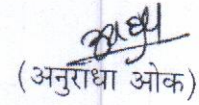 (अनुराधा ओक)